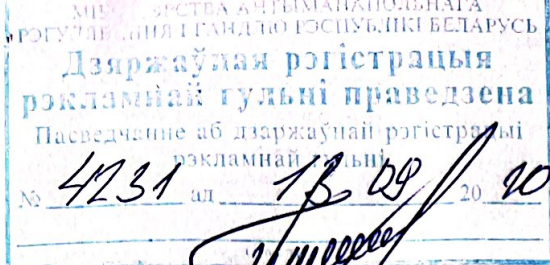 МІНІСТЭРСТВА АНТЫМАНАПОЛЬНАГА
РЭГУЛЯВАННЯ І ГАНДЛЮ РЭСПУБЛІКІ БЕЛАРУСЬ
Дзяржаўная рэгістрацыя
рэкламнай гульні праведзена
Пасведчанне аб дзаржаўнай рэгістрацыі
рэкламнай гульні
№ 4231 ад 18 09 20 20